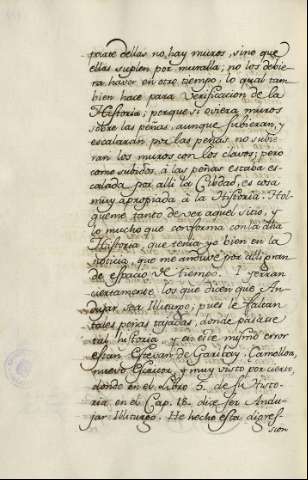 parte dellas no hay muros, sino que
ellas suplen por muralla; no los debie-
ra haver en otro tiempo, lo qual tam
bien hace para verificacion de la
Historia; porque si oviera muros
sobre las peñas, aunque subieran, y
escalaran por las peñas no subie-
ran los muros con los clavos; pero
como subidos a las peñas estaba es-
calada por alli la Ciudad, es cosa
muy apropiada à la Historia. Hol-
gueme tanto de ver aquel sitio, y
lo mucho que conforma con la dha
Historia, que tenia yo bien en la
noticia, que me andube por alli gran-
de espacio de tiempo. Y yerran
ciertamente, los que dicen que An-
dujar sea Iliturgo; pues le faltan
tales peñas tajadas, donde pasase
tal historia y en este mismo error
estan Estevan de Garibay, Camalloa,
nuevo Escritor, y muy visto por cierto,
donde en el Libro 5. de su Histo-
ria en el Cap. 18. dice ser Andu-
jar Iliturgo. He hecho esta digre-
sion